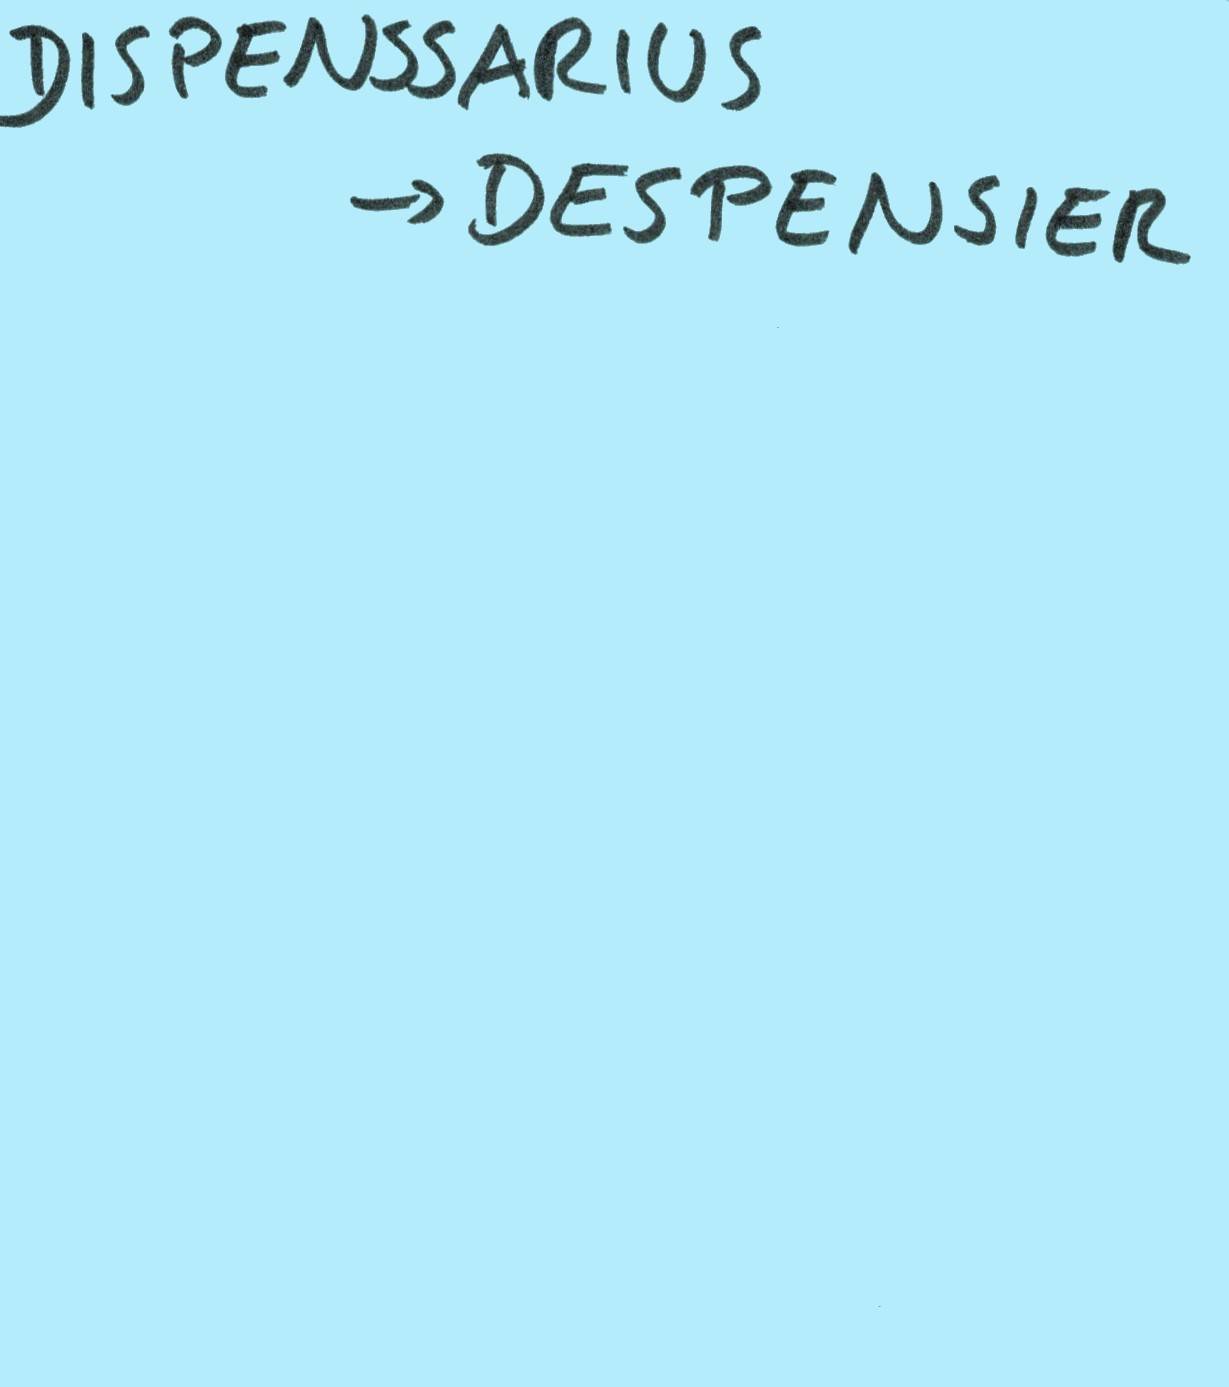 DISPENSSARIUS
→ DESPENSIER